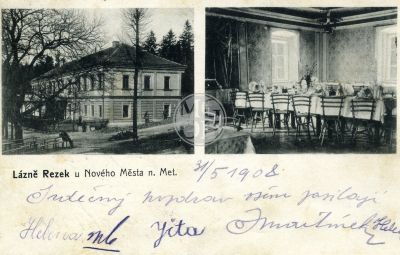 Lázně Rezek u Nového Města n. Met.
31/5 1908
Srdečný pozdrav všim zasílají
Helena Jita